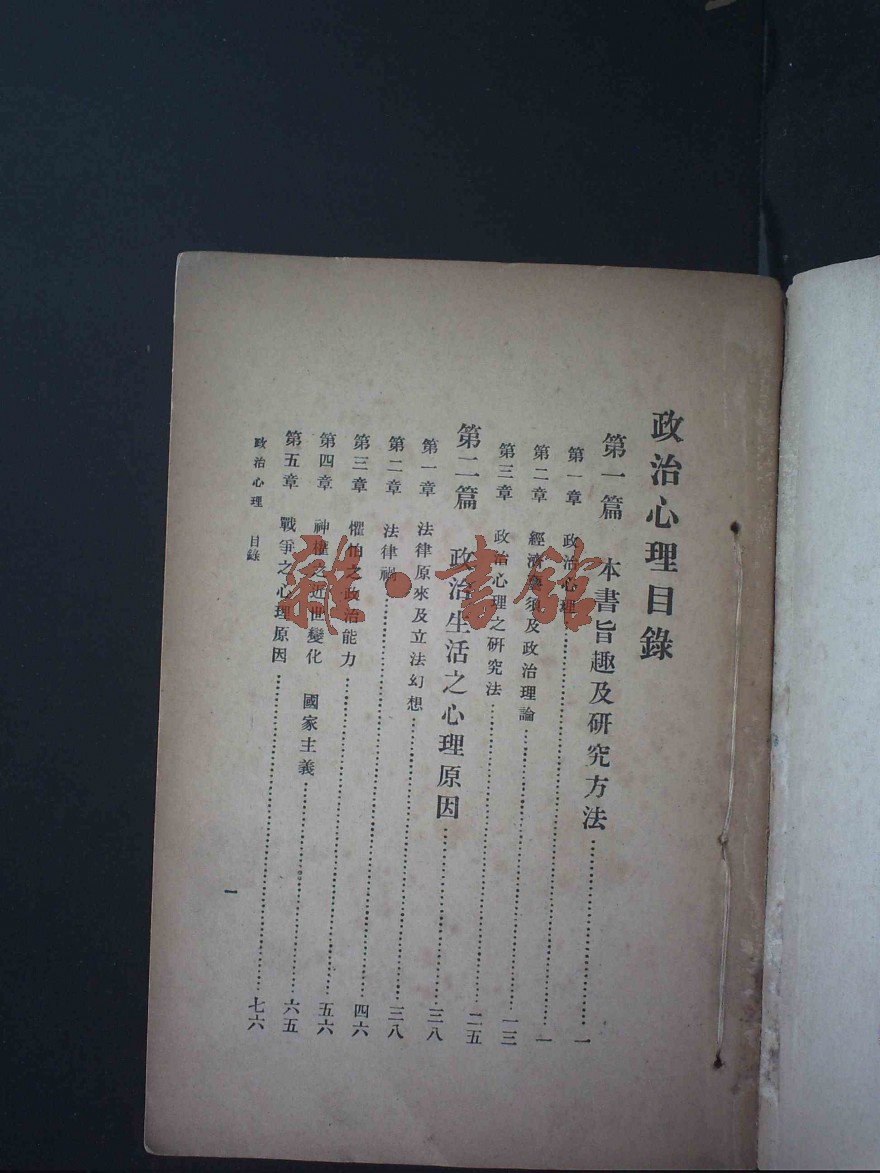 政治心理目錄
第一篇 本書旨趣及研究方法……一
第一章 政治心理……一
第二章 經濟須及政治理論……一三
第三章 政治心理之研究法……二五
第二篇 政治生活之心理原因……三八
第一章 法律原來及立法幻想……三八
第二章 法律禍……四六
第三章 懼怕之政治能力……五六
第四章 神權之近世變化 國家主義……六五
第五章 戰爭之心理原因……七六
政治心理 目錄
一
雜·書館